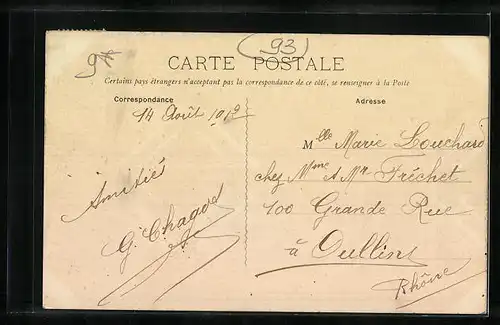 9*
(93)
CARTE POSTALE
Certains pays étrangers n'acceptant pas la correspondance de ce côté, se renseigner à la Poste
Correspondance
Adresse
14 Août
Mlle Marie Louchard
chez Mme A Mn Fréchet
100 Grande Rue
à Oullins
Rhône
Amitiés
G. Chagos